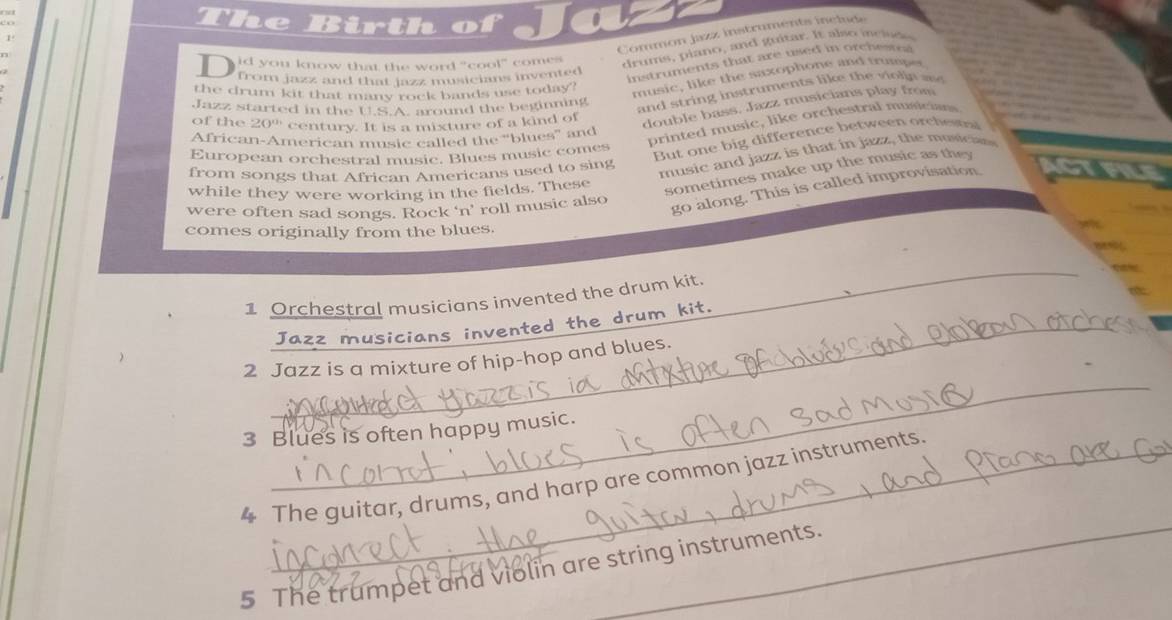 The Birth of Jazz
Did you know that the word "cool" comes
from jazz and that jazz musicians invented
the drum kit that many rock bands use today?
Jazz started in the U.S.A. around the beginning
of the 20th century. It is a mixture of a kind of
African-American music called the "blues" and
European orchestral music. Blues music comes
from songs that African Americans used to sing
while they were working in the fields. These
were often sad songs. Rock 'n' roll music also
comes originally from the blues.
Common jazz instruments include
drums, piano, and guitar. It also includes
instruments that are used in orchestral
music, like the saxophone and trumpet,
and string instruments like the violin and
double bass. Jazz musicians play from
printed music, like orchestral musicians.
But one big difference between orchestral
music and jazz is that in jazz, the musicians
sometimes make up the music as they
go along. This is called improvisation.
ACT FILE
1 Orchestral musicians invented the drum kit.
Jazz musicians invented the drum kit.
2 Jazz is a mixture of hip-hop and blues.
jazz is a mixture of blues and
music
3 Blues is often happy music.
incorret, blues is often sad music
4 The guitar, drums, and harp are common jazz instruments.
incorrect. the guitar, drums, and piano are co
jazz
5 The trumpet and violin are string instruments.